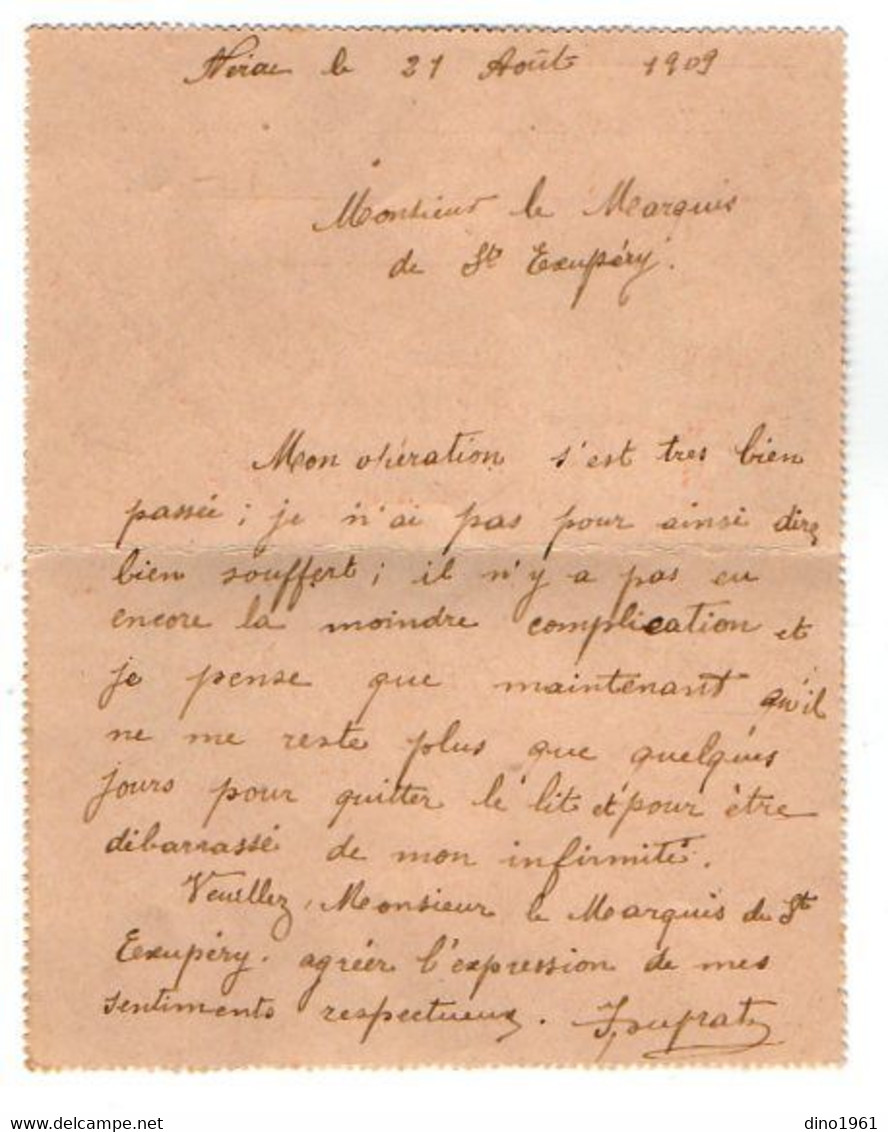 Nérac le 21 Août 1909
Monsieur le Marquis
de St Exupéry.
Mon opération s'est tres bien
passée ; je n'ai pas pour ainsi dire
bien souffert ; il n'y a pas eu
encore la moindre complication et
je pense que maintenant qu'il
ne me reste plus que quelques
jours pour quitter le lit et pour être
débarrassé de mon infirmité.
Veuillez, Monsieur le Marquis de St
Exupéry. agréer l'expression de mes
sentiments respectueux.
delcampe.net
dino1961